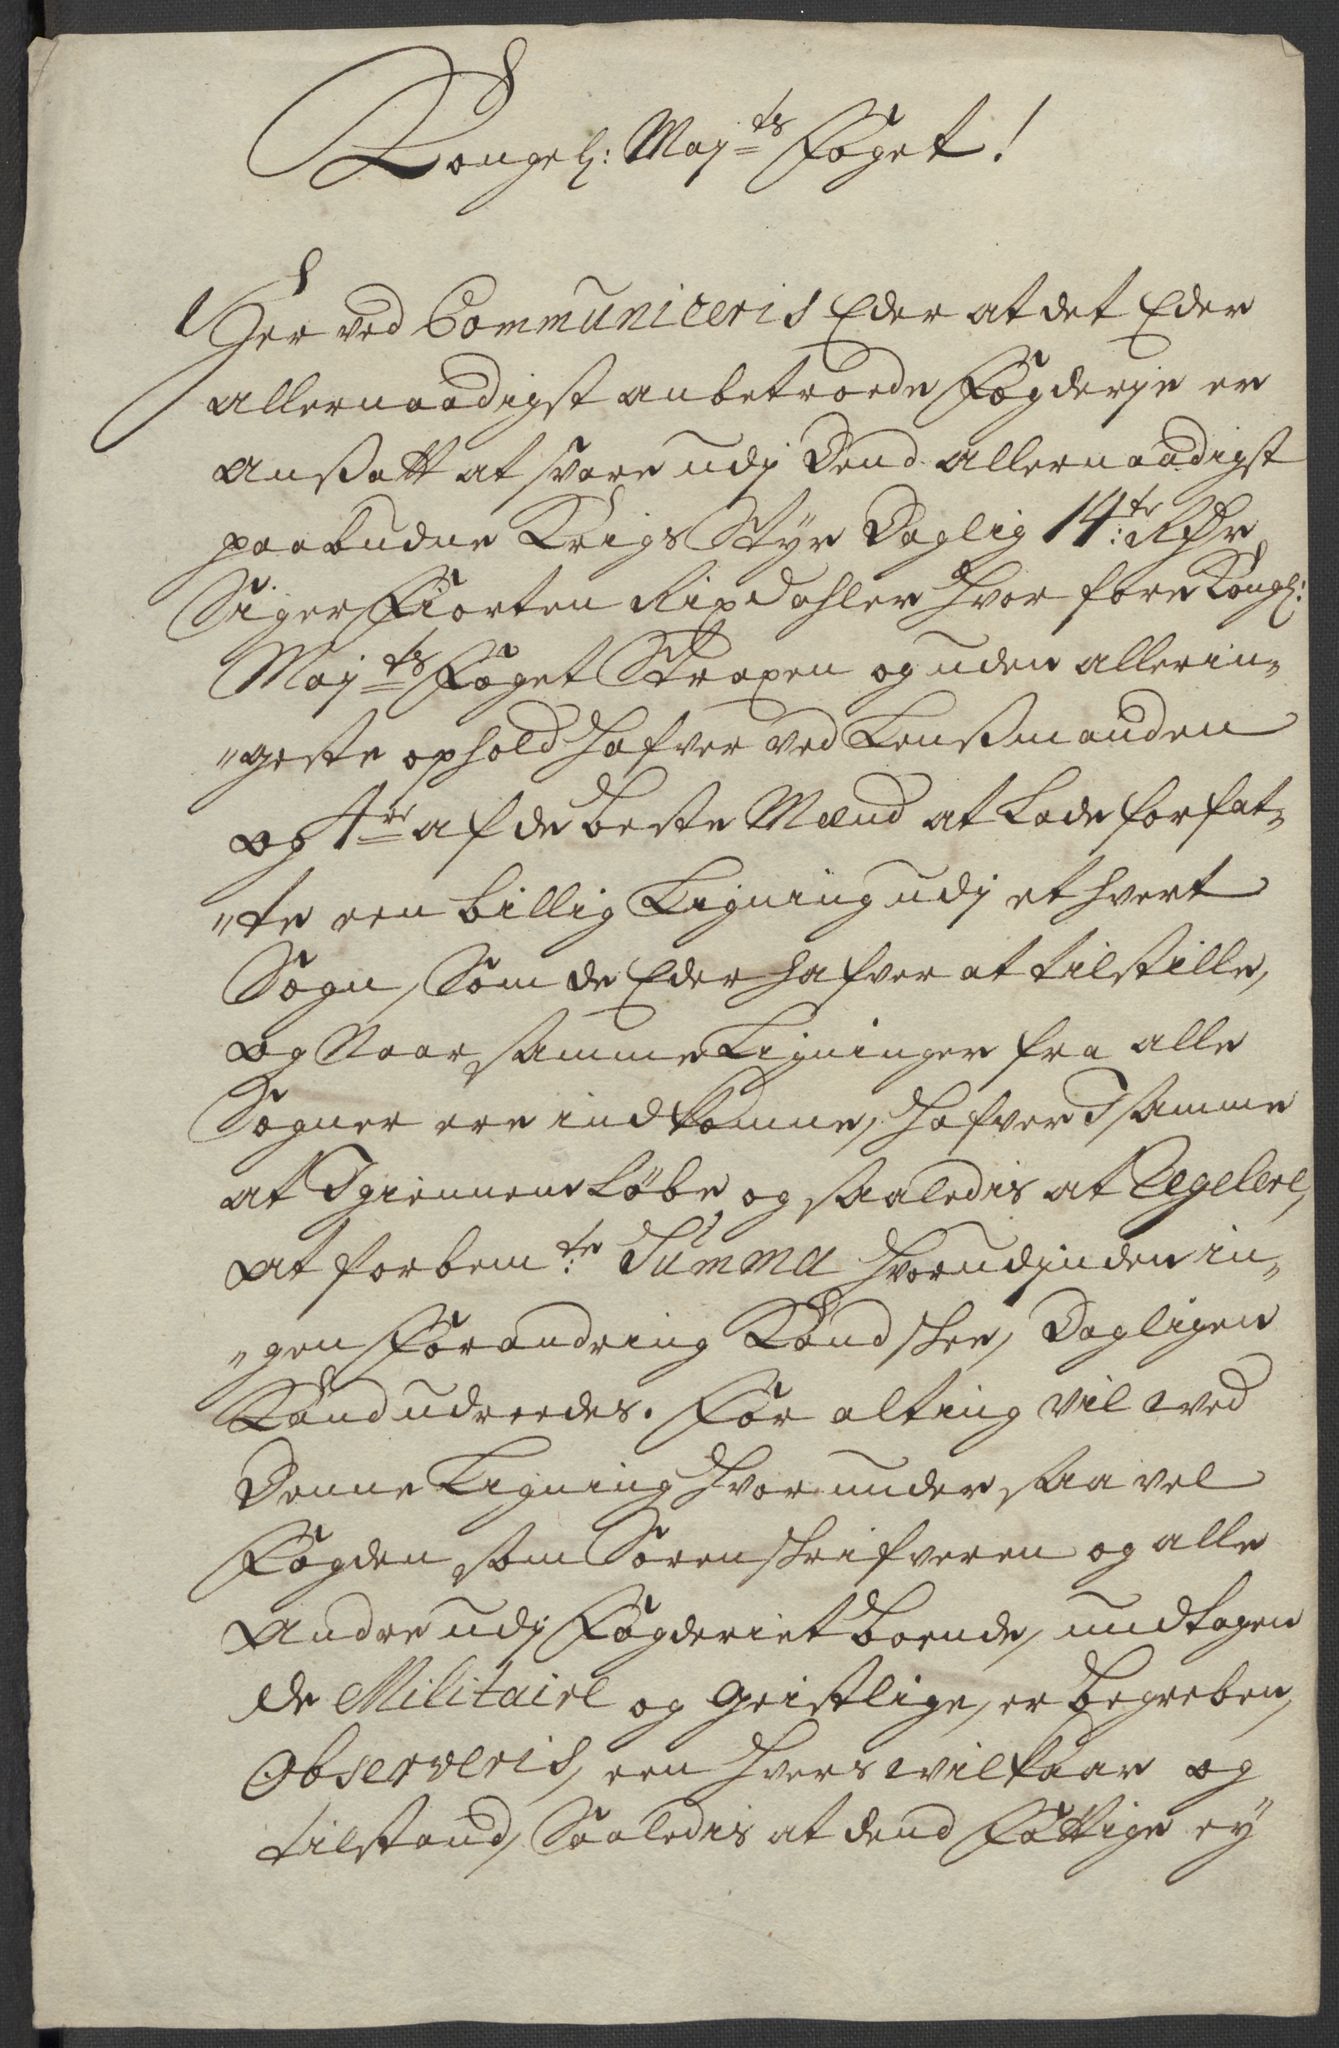 Kongel: Maj:ts Foget!
Her ved Communiceris Eder at det Eder
allernaadigst anbetroede Fogderje er
ansatt at svare udj Dend allernaadigst
paabudne Krigs Styr Daglig 14:te Rdr
Siger Fiorten Rixdahler Hvor fore Kongl:
Maj:ts Foget Straxen og uden allerin„
„geste ophold Hafver ved Lensmanden
og 4re af de beste Mænd at Lade forfat„
„te een billig Ligning udj et hvert
Sogn, Som de Eder hafver at tilstille,
og Naar samme Ligninger fra alle
Sogner ere indkomne, Hafver I samme
at Igiennem Løbe, og saaledis at Regelere,
at forbem:te Summa Hvorudjnden in„
„gen Forandring Kand skee, Dagligen
Kand udreedes. For alting vil ved
Denne Ligning Hvor under saa vel
Fogden som Sorenskrifveren og alle
Andre udj Fogderiet boende, undtagen
de Militaire og Geistlige, er begreben,
Observeris, een Hvers vilkaar og
tilstand, Saaledis at dend Fattige ey